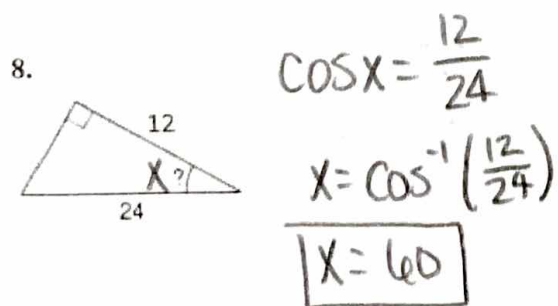 8.
12
X ?
24
cos x = 12/24
x = cos⁻¹ (12/24)
x = 60